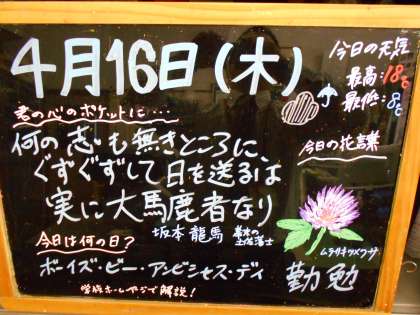 4月16日(木)
今日の天気
最高:18℃
最低:8℃
君の心のポケットに・・・・
何の志も無きところに、
ぐずぐずして日を送るは
実に大馬鹿者なり
坂本龍馬 幕末の土佐藩士
今日の花言葉
ムラサキツメクサ
勤勉
今日は何の日?
ボーイズ・ビー・アンビシャス・デイ
学院ホームページで解説!